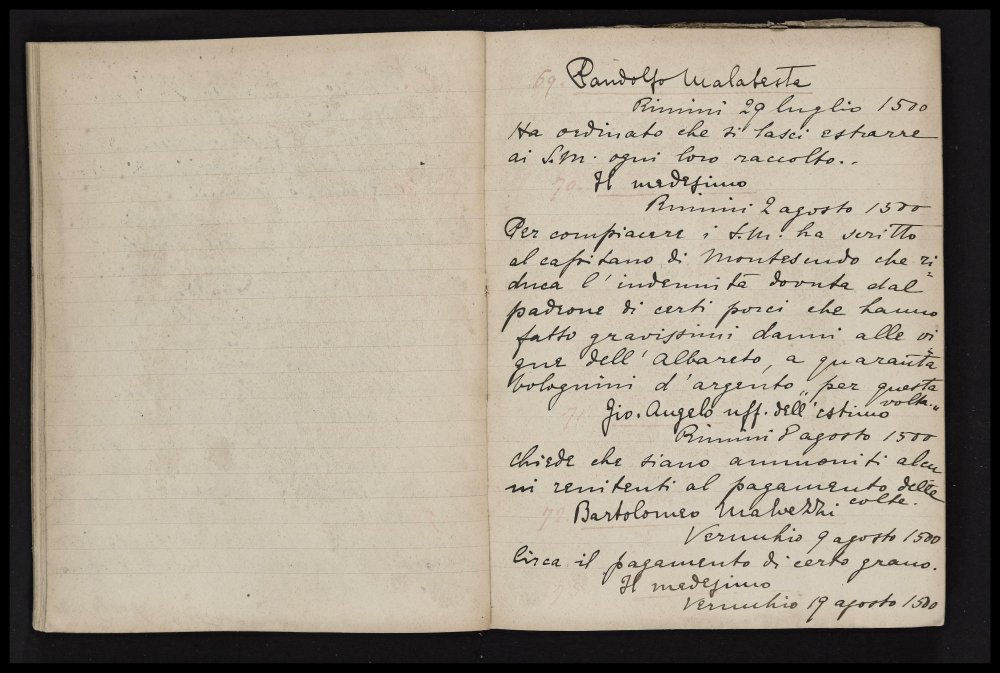 69. Pandolfo Malatesta
Rimini 29 luglio 1500
Ha ordinato che si lasci estrarre
ai S.M. ogni loro raccolto..
70. Il medesimo
Rimini 2 agosto 1500
Per compiacere i S.M. ha scritto
al capitano di Montescudo che ri=
duca l'indennità dovuta dal
padrone di certi porci che hanno
fatto gravissimi danni alle vi=
gne dell'Albareto, a quaranta
bolognini d'argento „per questa
volta."
71. Gio. Angelo uff. dell'estimo
Rimini 8 agosto 1500
Chiede che siano ammoniti alcu
ni renitenti al pagamento delle
colte.
72. Bartolomeo Malvezzi
Verucchio 9 agosto 1500
Circa il pagamento di certo grano.
Il medesimo
Verucchio 19 agosto 1500